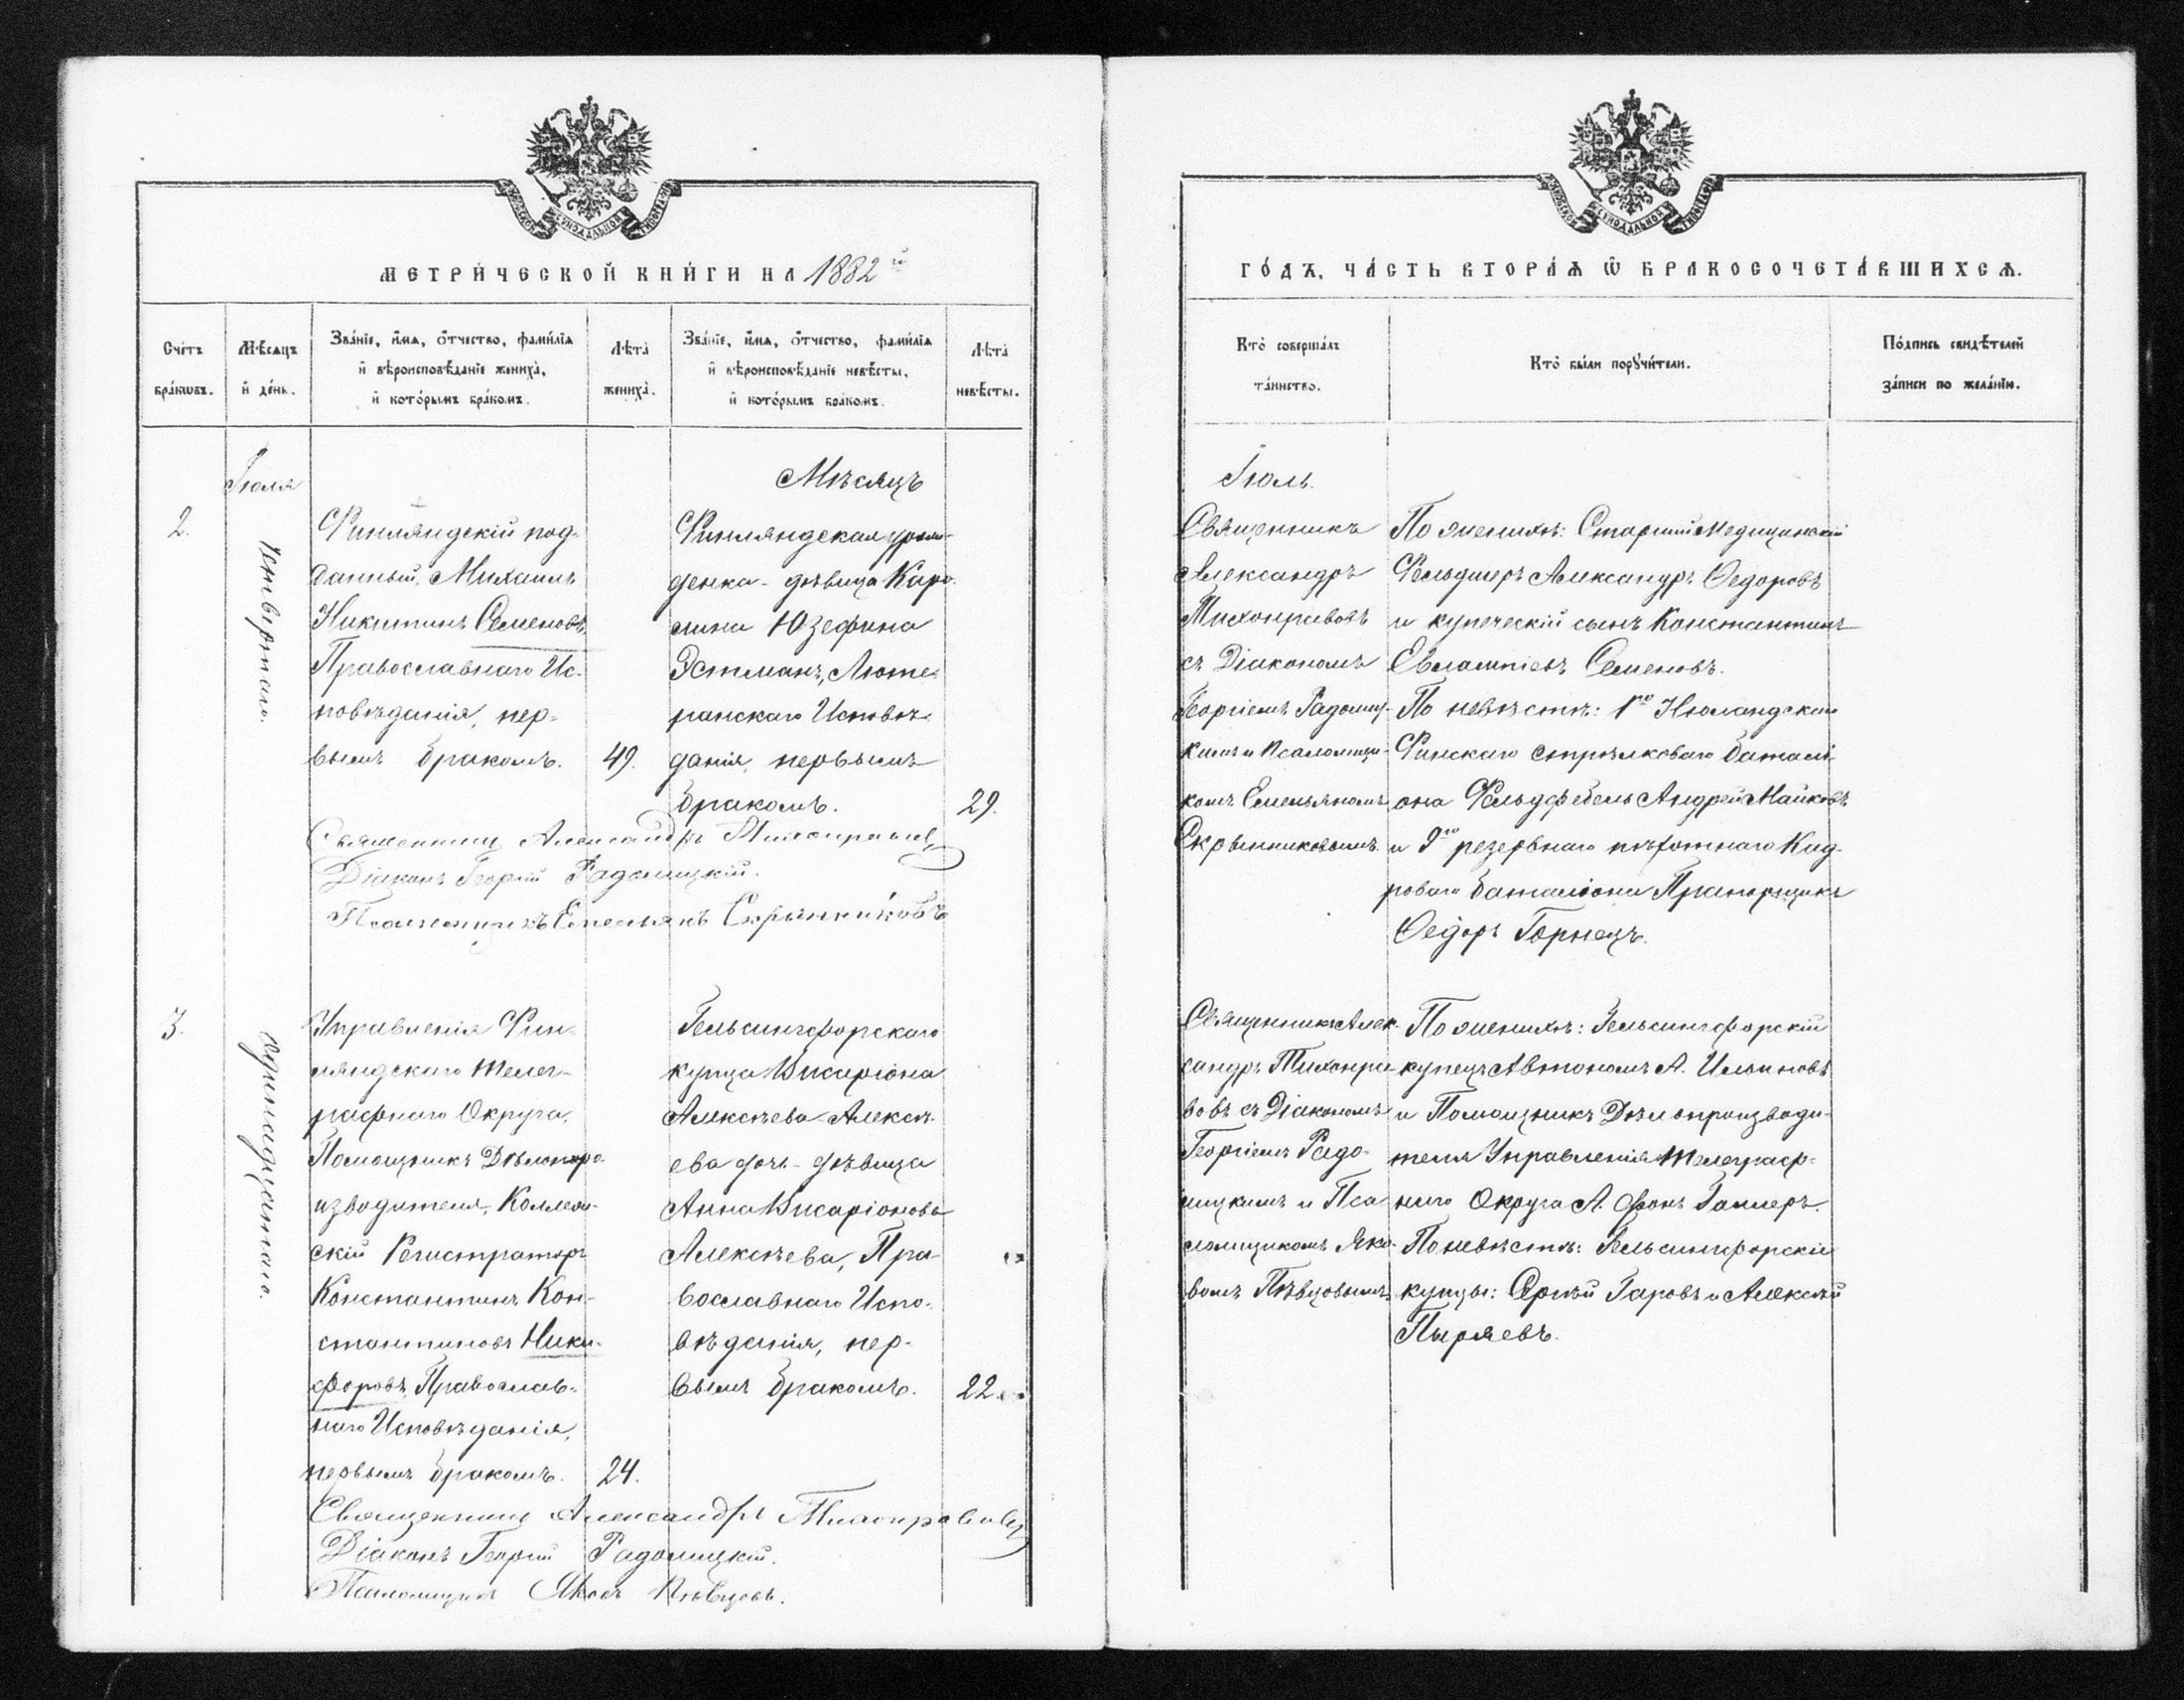 МЕТРИ́ЧЕСКОЙ КНИ́ГИ НА 1882й
Сче́тъ бра́ковъ.
Мѣ́сяцъ и҆ де́нь.
Зва́нїе, и҆́мѧ, ѻ҆́тчество, фами́лїѧ
и҆ вѣроисповѣ́данїе жениха̀,
и҆ кото́рымъ бра́комъ.
Лѣта̀ жениха̀.
Зва́нїе, и҆́мѧ, ѻ҆́тчество, фами́лїѧ
и҆ вѣроисповѣ́данїе невѣ́сты,
и҆ кото́рымъ бра́комъ.
Лѣта̀ невѣ́сты.
Іюля
Мѣсяцъ
2.
четвертаго.
Финляндскій под-
данный, Михаилъ
Никитинъ Семеновъ,
Православнаго Ис-
повѣданія, пер-
вымъ бракомъ.
49.
Финляндская уро-
денка - дѣвица Каро-
лина Юзефина
Эстманъ, Люте-
ранскаго Исповѣ-
данія, первымъ
бракомъ.
29.
Священникъ Александръ Тихонравовъ
Діаконъ Георгій Радомицкій.
Псаломщикъ Емельянъ Скрынниковъ
3.
одиннадцатаго.
Управленія Фин-
ляндскаго Телег-
рафнаго Округа,
Помощникъ Дѣлопро-
изводителя, Коллеж-
скій Регистраторъ
Константинъ Кон-
стантиновъ Ники-
форовъ, Православ-
наго Исповѣданія,
первымъ бракомъ.
24.
Гельсингфорскаго
купца Висаріона
Алексѣева Алексѣ-
ева дочь - дѣвица
Анна Висаріонова
Алексѣева, Пра-
вославнаго Испо-
вѣданія, пер-
вымъ бракомъ.
22.
Священникъ Александръ Тихонравовъ
Діаконъ Георгій Радомицкій.
Псаломщикъ Яковъ Пѣвцовъ.
ГО́ДЪ, ЧА́СТЬ ВТОРА́Ѧ Ѽ БРАКОСОЧЕТА́ВШИХСѦ.
Кто̀ соверша́лъ
та́инство.
Кто̀ бы́ли порꙋчи́тели.
По́дпись свидѣ́телей
за́писи по жела́нїю.
Іюль.
Священникъ
Александръ
Тихонравовъ
съ Діакономъ
Георгіемъ Радомиц-
кимъ и Псаломщи-
комъ Емельяномъ
Скрынниковымъ.
По женихѣ: Старшій Медицинскій
Фельдшеръ Александръ Ѳедоровъ
и купеческій сынъ Константинъ
Евлампіевъ Семеновъ.
По невѣстѣ: 1го Нюландскаго
Финскаго стрѣлковаго баталі-
она Фельдфебель Андрей Майковъ
и 9го резервнаго пѣхотнаго Кад-
роваго баталіона Прапорщикъ
Ѳедоръ Горнецъ.
Священникъ Алек-
сандръ Тихонра-
вовъ съ Діакономъ
Георгіемъ Радо-
мицкимъ и Пса-
ломщикомъ Яко-
вомъ Пѣвцовымъ.
По женихѣ: Гельсингфорскій
купецъ Автономъ А. Ильиновъ
и Помощникъ Дѣлопроизводи-
теля Управленія Телеграф-
наго Округа А. фонъ Галлеръ.
По невѣстѣ: Гельсингфорскіе
купцы: Сергѣй Гаровъ и Алексѣй
Пыряевъ.